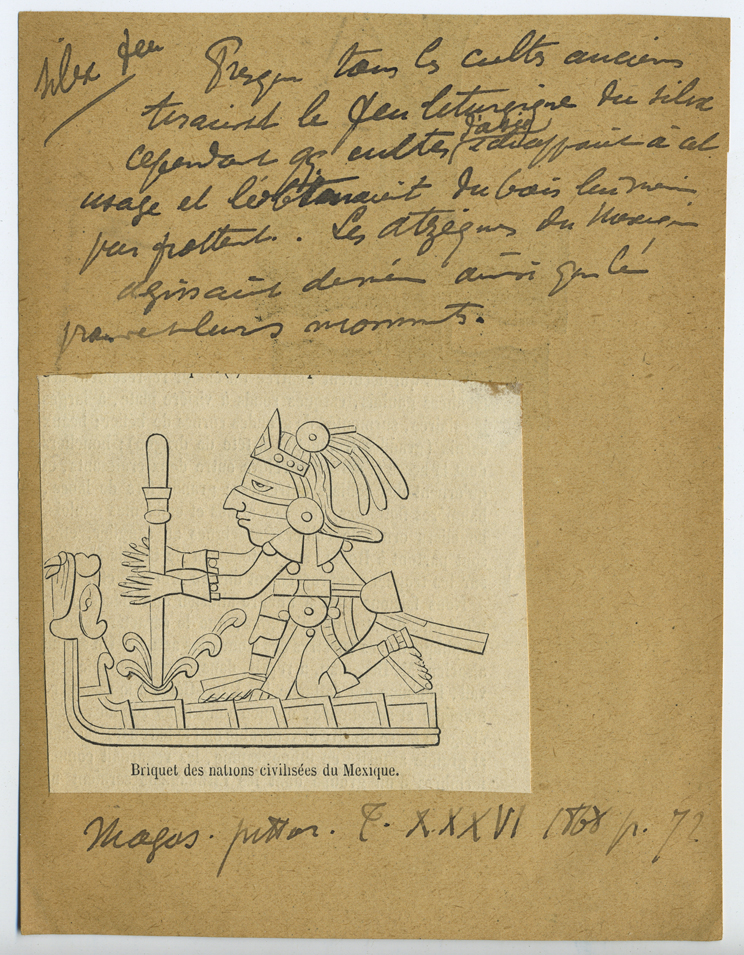 silex feu
Presque tous les cultes anciens
tiraient le feu liturgique du silex
cependant qq cultes d'asie échappaient à cet
usage et l'obtenait du bois lui même
par frottent. Les Atzèques du Mexique
agissaient de même ainsi que le
prouvent leurs monuments.
Briquet des nations civilisées du Mexique.
Magas. pittor. T. XXXVI 1868 p. 72